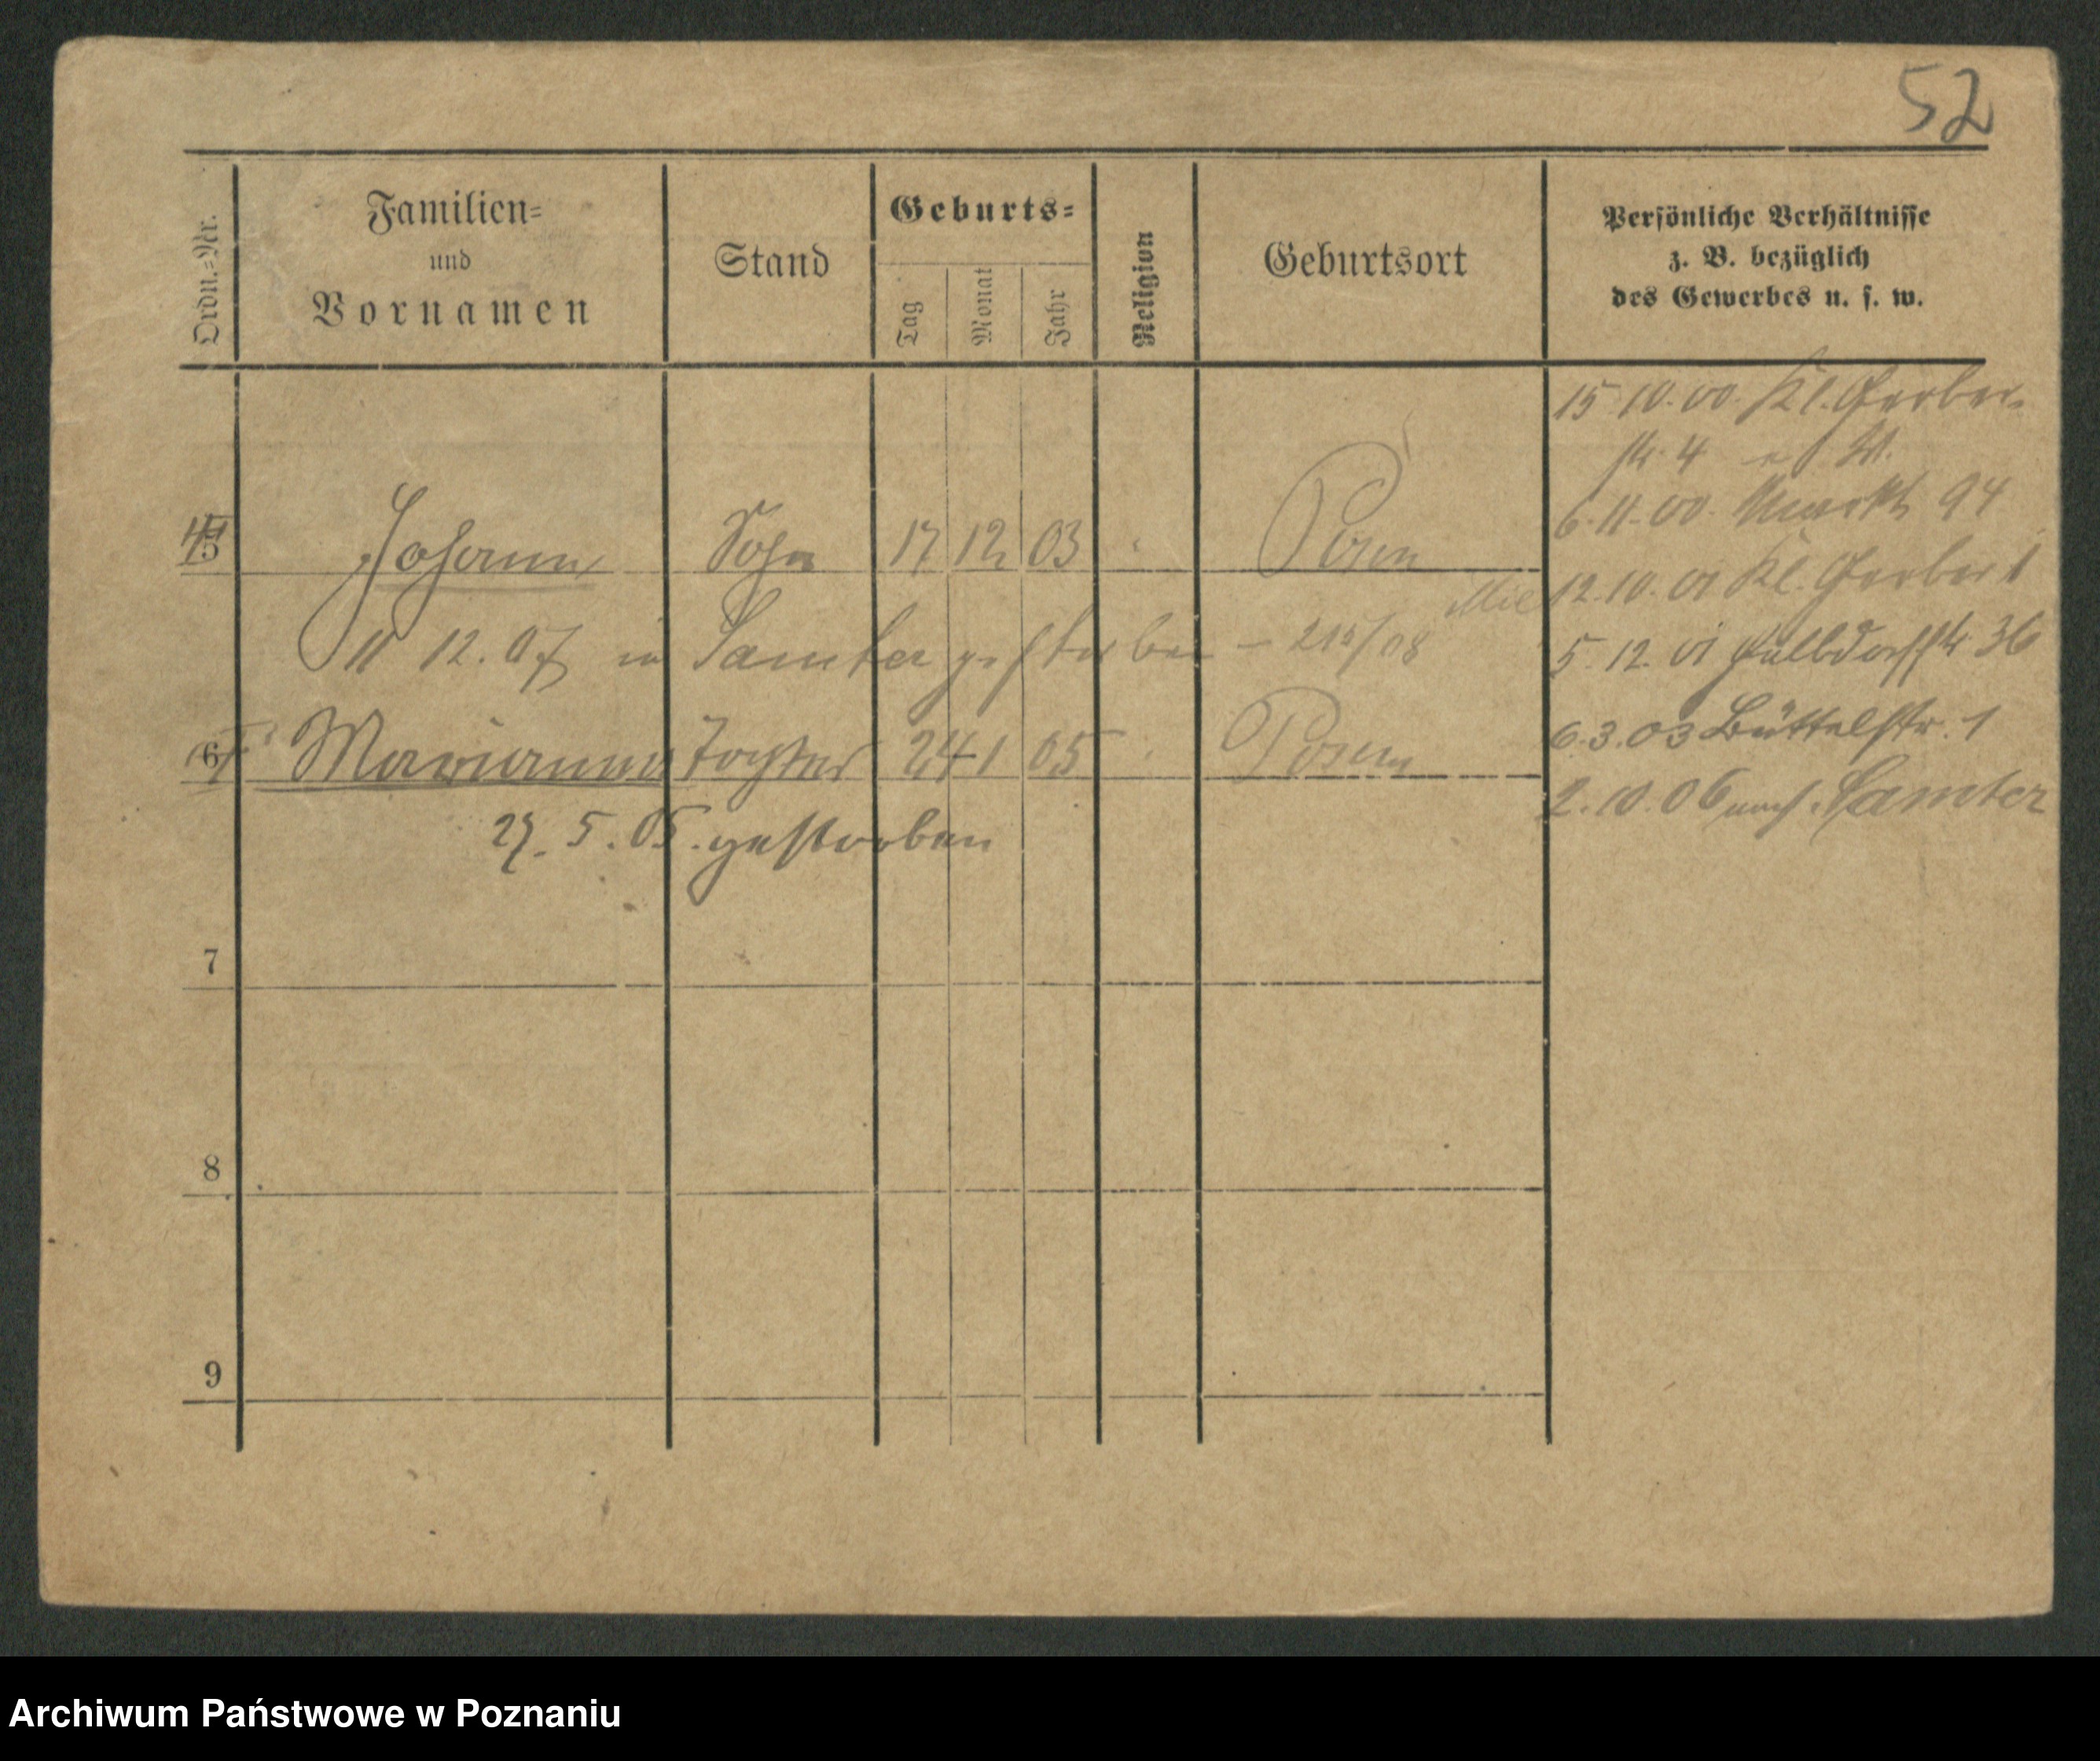 52
Ordn.=Nr.
Familien=
und
Vornamen
Stand
Geburts=
Tag
Monat
Jahr
Religion
Geburtsort
Persönliche Verhältnisse
z. B. bezüglich
des Gewerbes u. s. w.
15 10. 00. Kl. Gerber-
str. 4
6. 11. 00. Markt 94
5 Johann Sohn 17 12 03 Posen
12. 10. 01 Kl. Gerber 1
11 12. 07 in Samter gestorben - 212/08
5. 12. 01 Halbdorfstr 36
6 Marianna Tochter 24 1 05 Posen
6. 3. 03 Büttelstr. 1
2. 10. 06 nach Samter
27. 5. 05. gestorben
7
8
9
Archiwum Państwowe w Poznaniu